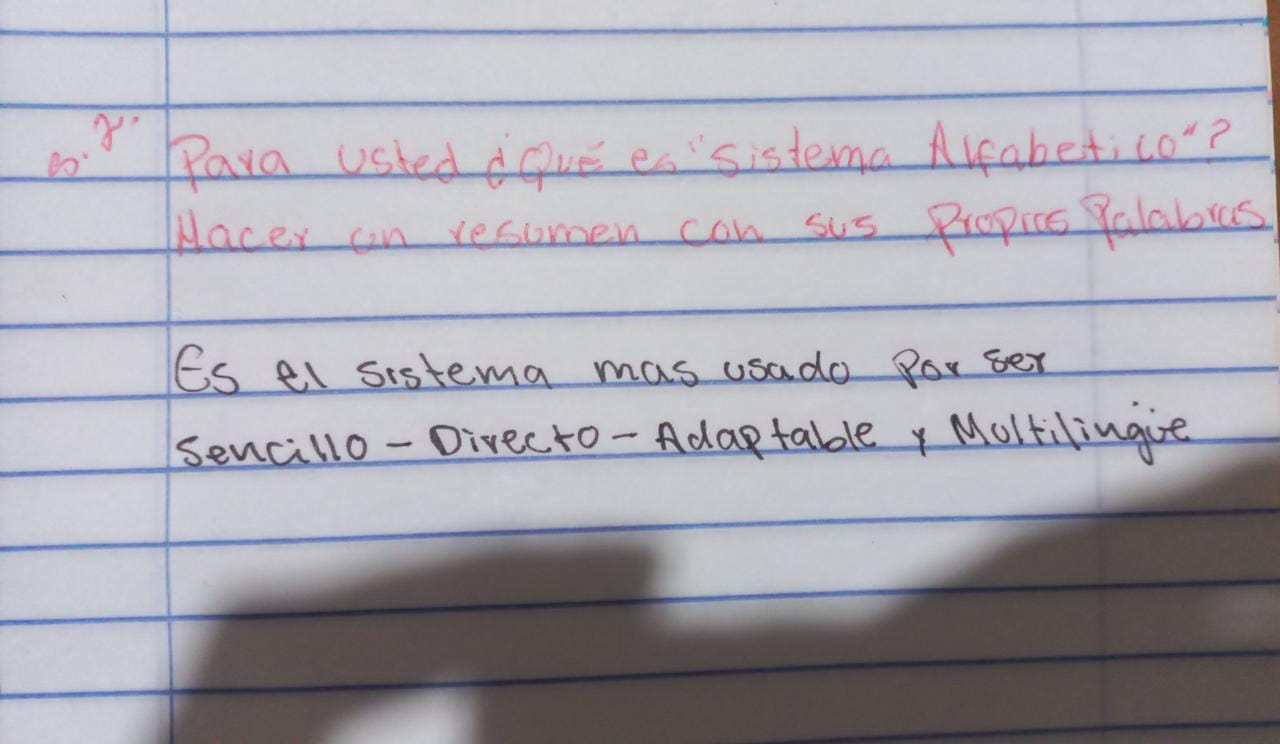 Para usted ¿Qué es "sistema Alfabetico"?
Hacer un resumen con sus Propias Palabras
Es el sistema mas usado Por ser
Sencillo - Directo - Adaptable y Multilingüe